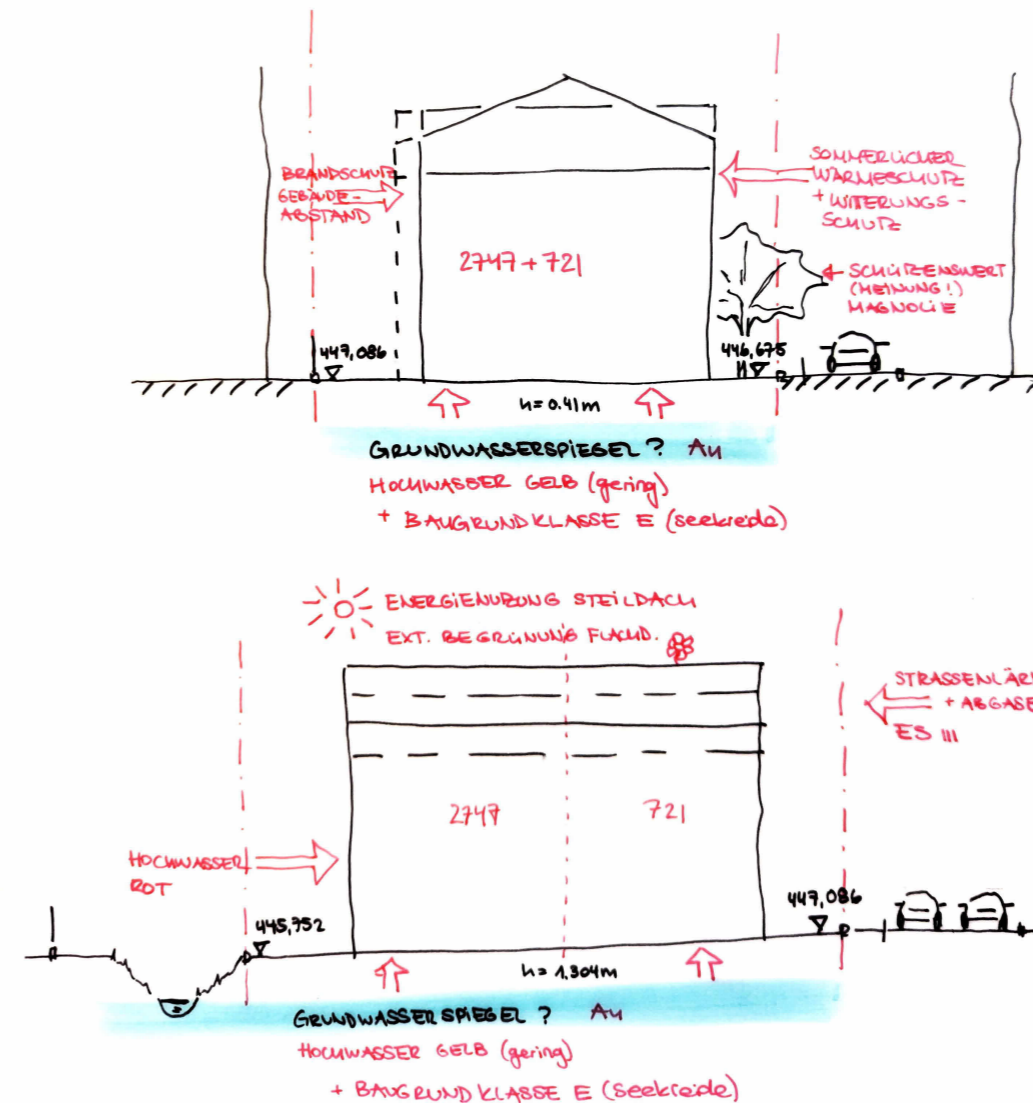 BRANDSCHUTZ
GEBÄUDE-
ABSTAND
SOMMERLICHER
WÄRMESCHUTZ
+ WITERUNGS-
SCHUTZ
2747 + 721
SCHÜTZENSWERT
(MEINUNG!)
MAGNOLIE
447,086
446,675
h = 0.41m
GRUNDWASSERSPIEGEL? Au
HOCHWASSER GELB (gering)
+ BAUGRUNDKLASSE E (seekreide)
ENERGIENUZUNG STEILDACH
EXT. BEGRÜNUNG FLACHD.
STRASSENLÄR
+ ABGASE
ES III
2747
721
HOCHWASSER
ROT
445,752
447,086
h = 1.304m
GRUNDWASSERSPIEGEL? Au
HOCHWASSER GELB (gering)
+ BAUGRUNDKLASSE E (Seekreide)